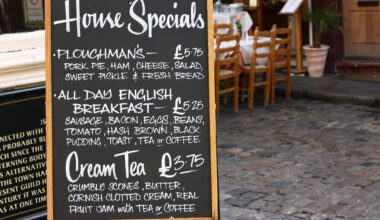 House Specials
• PLOUGHMAN'S — £5.75
PORK PIE, HAM, CHEESE, SALAD,
SWEET PICKLE & FRESH BREAD
• ALL DAY ENGLISH
BREAKFAST — £5.25
SAUSAGE, BACON, EGGS, BEANS,
TOMATO, HASH BROWN, BLACK
PUDDING, TOAST, TEA or COFFEE
Cream Tea £3.75
CRUMBLY SCONES, BUTTER,
CORNISH CLOTTED CREAM, REAL
FRUIT JAM with TEA or COFFEE
NNECTED WITH
PROBABLY BU
CH SINCE THE
ERNING BODY
S ALTERNATIV
THE TOWN HA
UES GREW
ENTURY IT WAS
AS AT ONE TIME